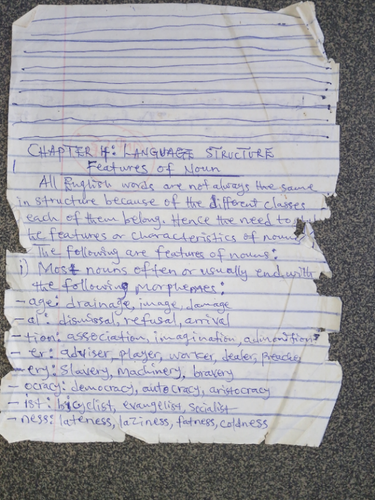 CHAPTER 4: LANGUAGE STRUCTURE
Features of Noun
All English words are not always the same
in structure because of the different classes
each of them belong. Hence the need to
the features or characteristics of nouns
The following are features of nouns:
i) Most nouns often or usually end with
the following morphemes:
- age: drainage, image, damage
- al: dismissal, refusal, arrival
- tion: association, imagination, admonition
- er: adviser, player, worker, dealer, preacher
- ery: Slavery, machinery, bravery
- ocracy: democracy, autocracy, aristocracy
- ist: bicyclist, evangelist, socialist
- ness: lateness, laziness, fatness, coldness